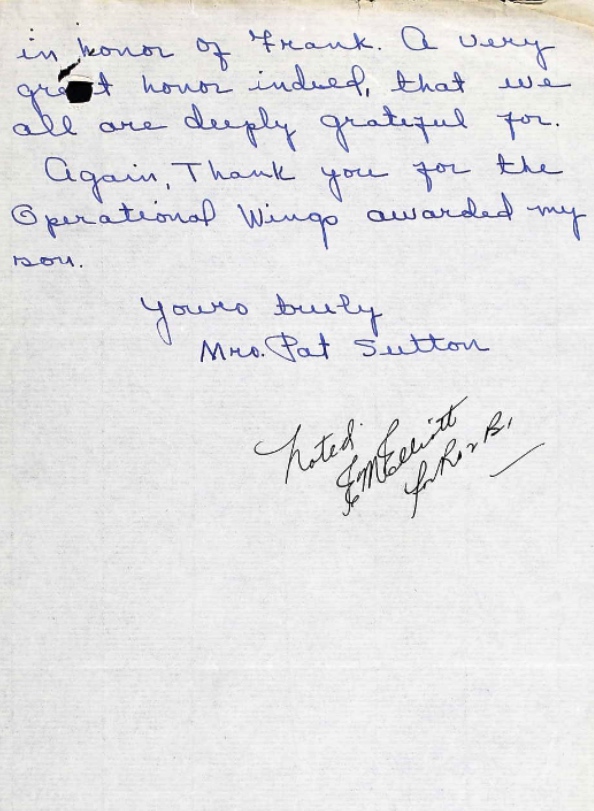 in honor of Frank. A very
great honor indeed, that we
all are deeply grateful for.
Again, Thank you for the
Operational Wings awarded my
son.
Yours truly
Mrs. Pat Sutton
Noted
EMElliott
for R o f B.